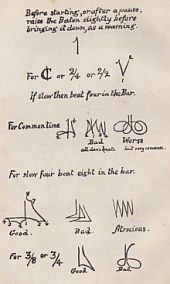 Before starting, or after a pause,
raise the Baton slightly before
bringing it down, as a warning.
For C or 2/4 or 2/2
If slow then beat four in the Bar.
For Common time
Bad Worse
all down beats but very common.
For slow four beat eight in the bar.
Good. Bad. Atrocious.
For 3/8 or 3/4
Good Bad